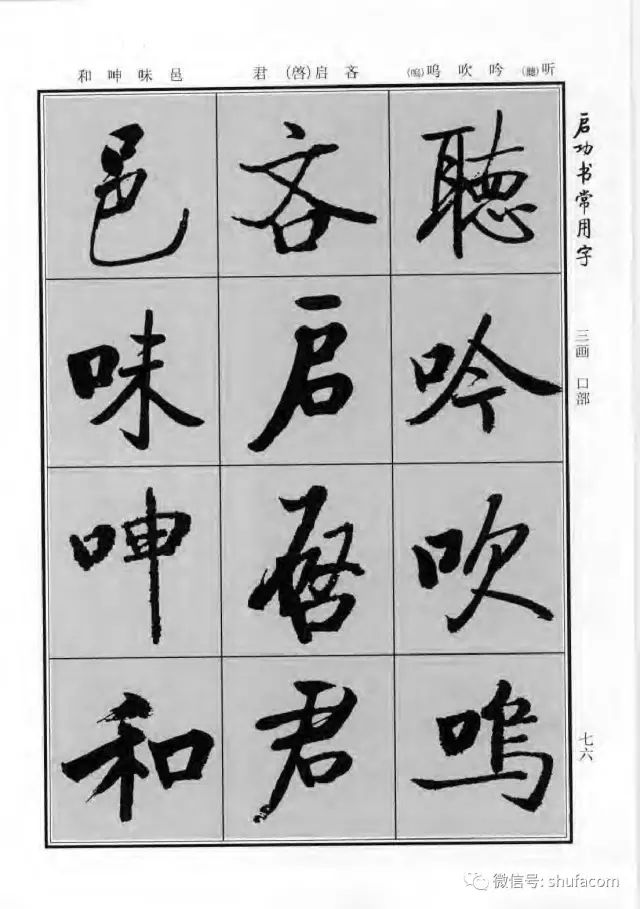 和呻味邑 君(啓)启吝 (嗚)呜吹吟 (聽)听
启功书常用字
三画 口部
七六
聽吟吹嗚
吝启啓君
邑味呻和
微信号: shufacom